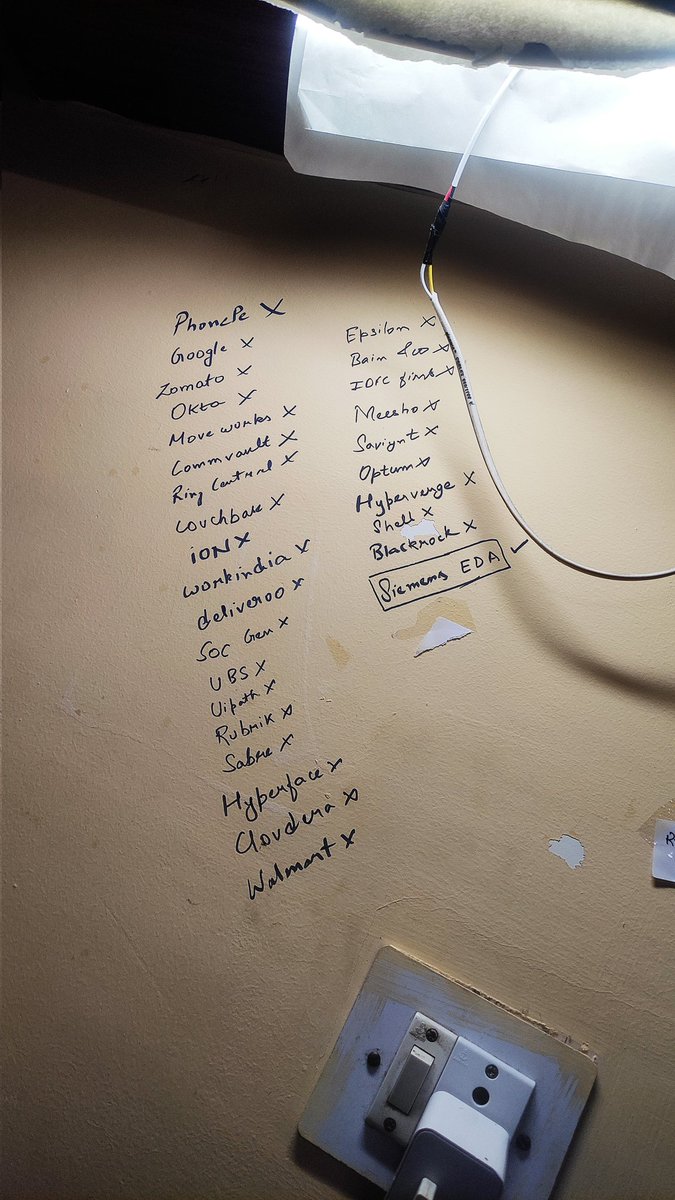 PhonePe X
Google X
Zomato X
Okta X
Move works X
Commvault X
Ring Central X
Couchbase X
iON X
workindia X
deliveroo X
SOC Gen X
UBS X
Uipath X
Rubrik X
Sabre X
Hyperface X
Cloudera X
Walmart X
Epsilon X
Bain & co X
IDFC first X
Meesho X
Saviynt X
Optum X
Hyperverge X
Shell X
Blackrock X
Siemens EDA ✓